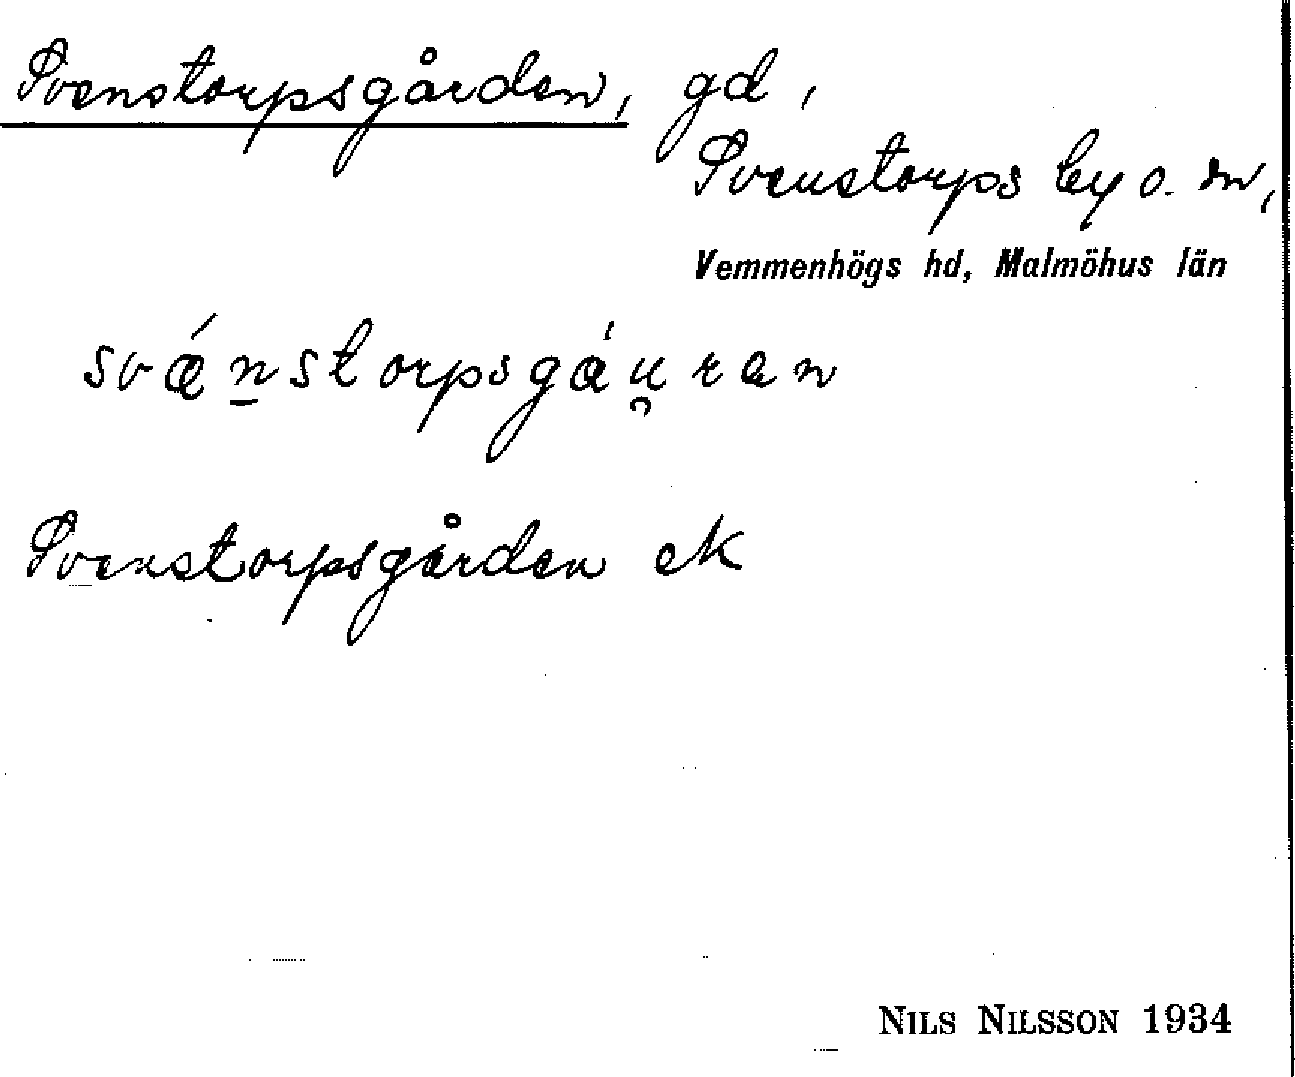 Svenstorpsgården, gd,
Svenstorps by o. sn,
Vemmenhögs hd, Malmöhus län
svǽn̠storpsgáu̯ran
Svenstorpsgården eK
NILS NILSSON 1934